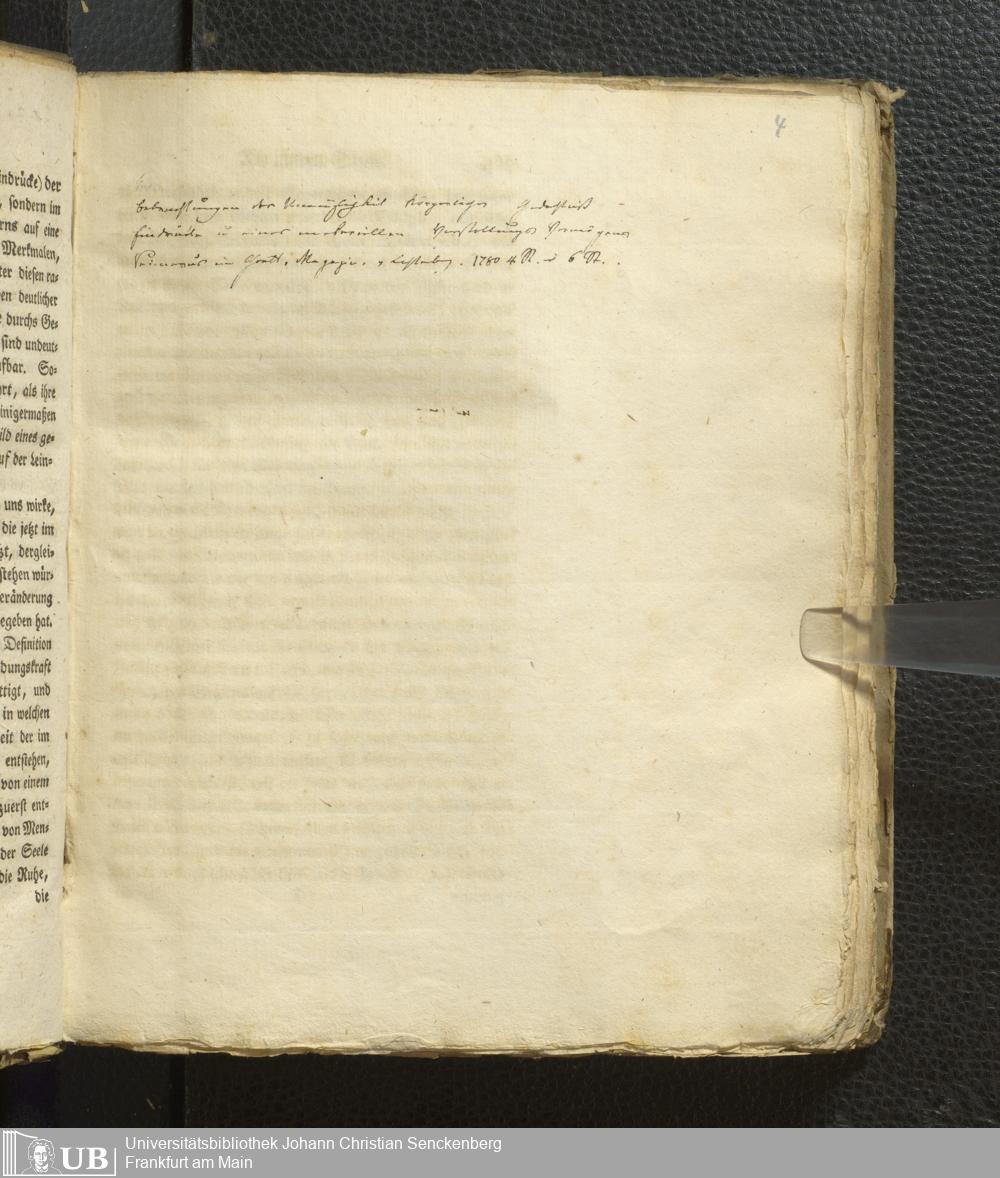 indrücke) der
, sondern im
rns auf eine
Merkmalen,
ter diesen ra-
en deutlicher
e durchs Ge-
sind undeut-
fbar. So-
rt, als ihre
inigermaßen
ild eines ge-
uf der Lein-
uns wirke,
die jetzt im
zt, derglei-
stehen wür-
eränderung
egeben hat.
Definition
dungskraft
ttigt, und
in welchen
eit der im
entstehen,
von einem
zuerst ent-
von Men-
der Seele
die Ruhe,
die
4
Betrachtungen der Unmöglichkeit körperlicher Gedächtniß-
Eindrücke u eines materiellen Vorstellungs Vermögens
Reimarus im Goett. Magazin. v Lichtenberg. 1780 4 St. u 6 St.
UB
Universitätsbibliothek Johann Christian Senckenberg
Frankfurt am Main